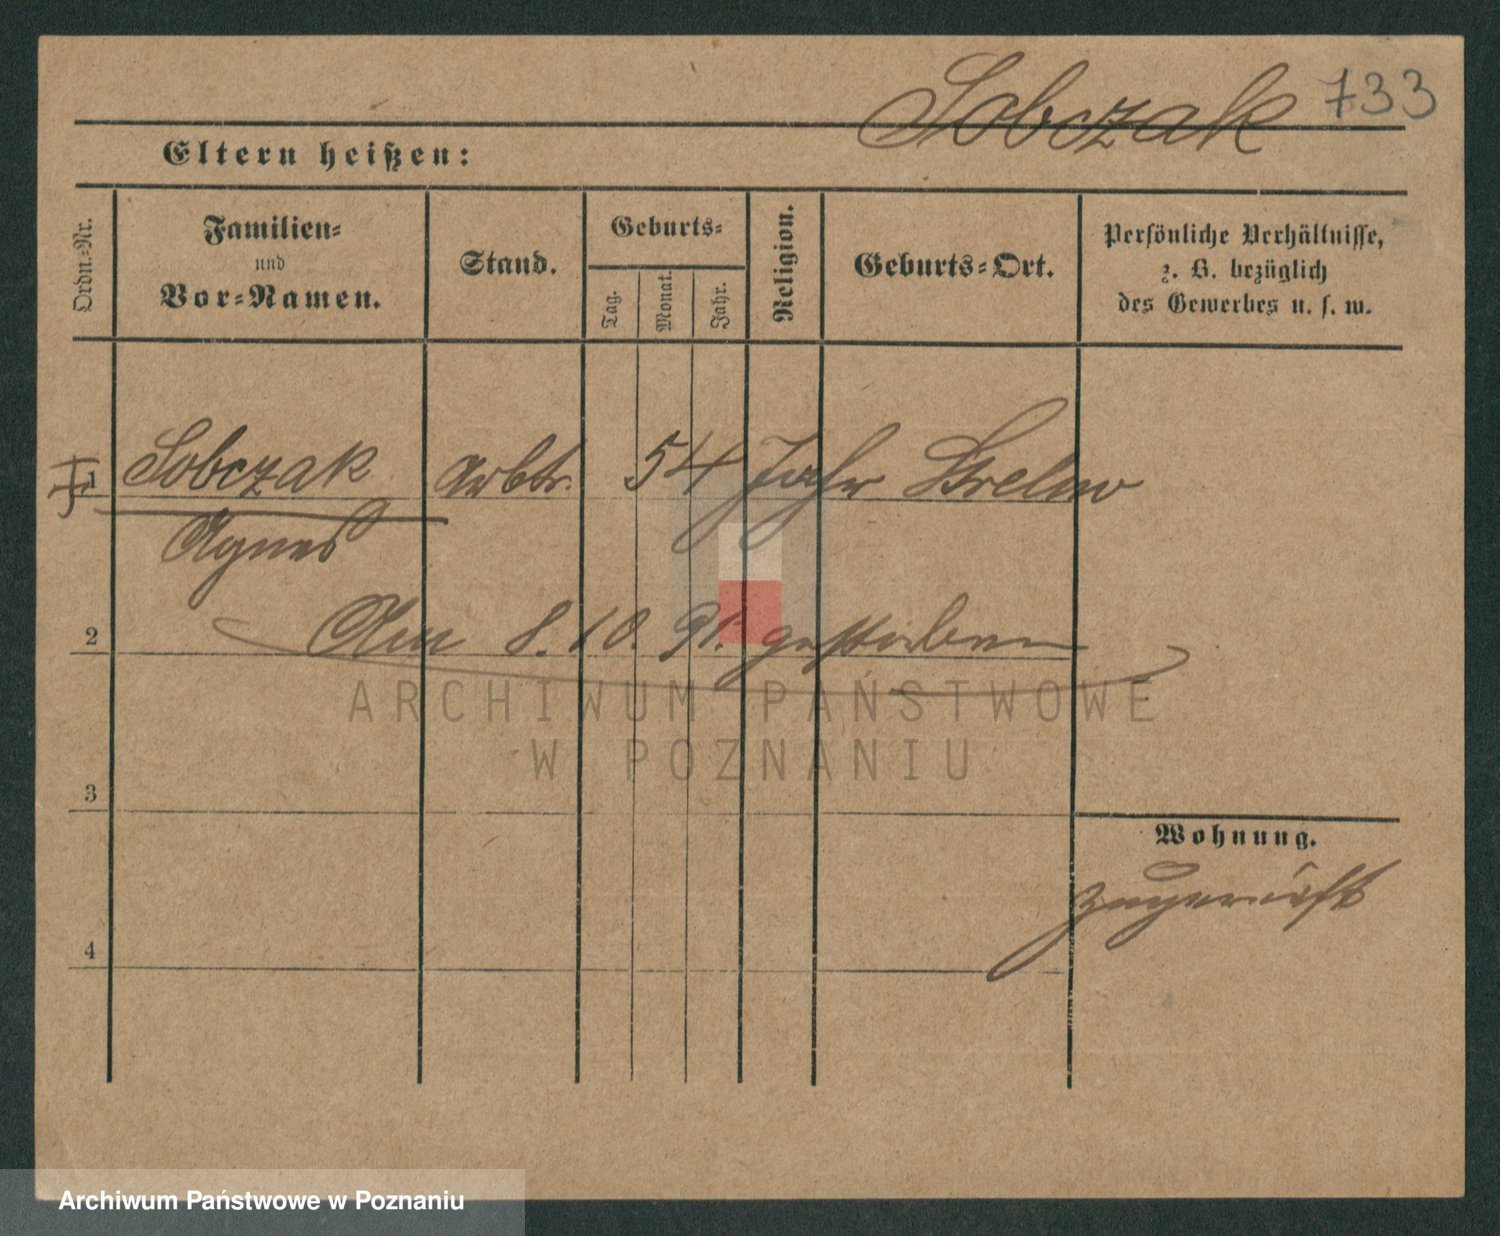 Sobczak 733
Eltern heißen:
Ordn.-Nr.
Familien-
und
Vor-Namen.
Stand.
Geburts-
Tag.
Monat.
Jahr.
Religion.
Geburts-Ort.
Persönliche Verhältnisse,
z. B. bezüglich
des Gewerbes u. s. w.
1 Sobczak Arbtr. 54 Jahr
Agnes
2 Am 8. 10. 91. gestorben
ARCHIWUM PAŃSTWOWE
W POZNANIU
3
Wohnung.
zugereist
4
Archiwum Państwowe w Poznaniu